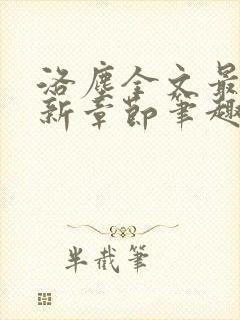 洛塵全文最
新章節筆趣
半截筆